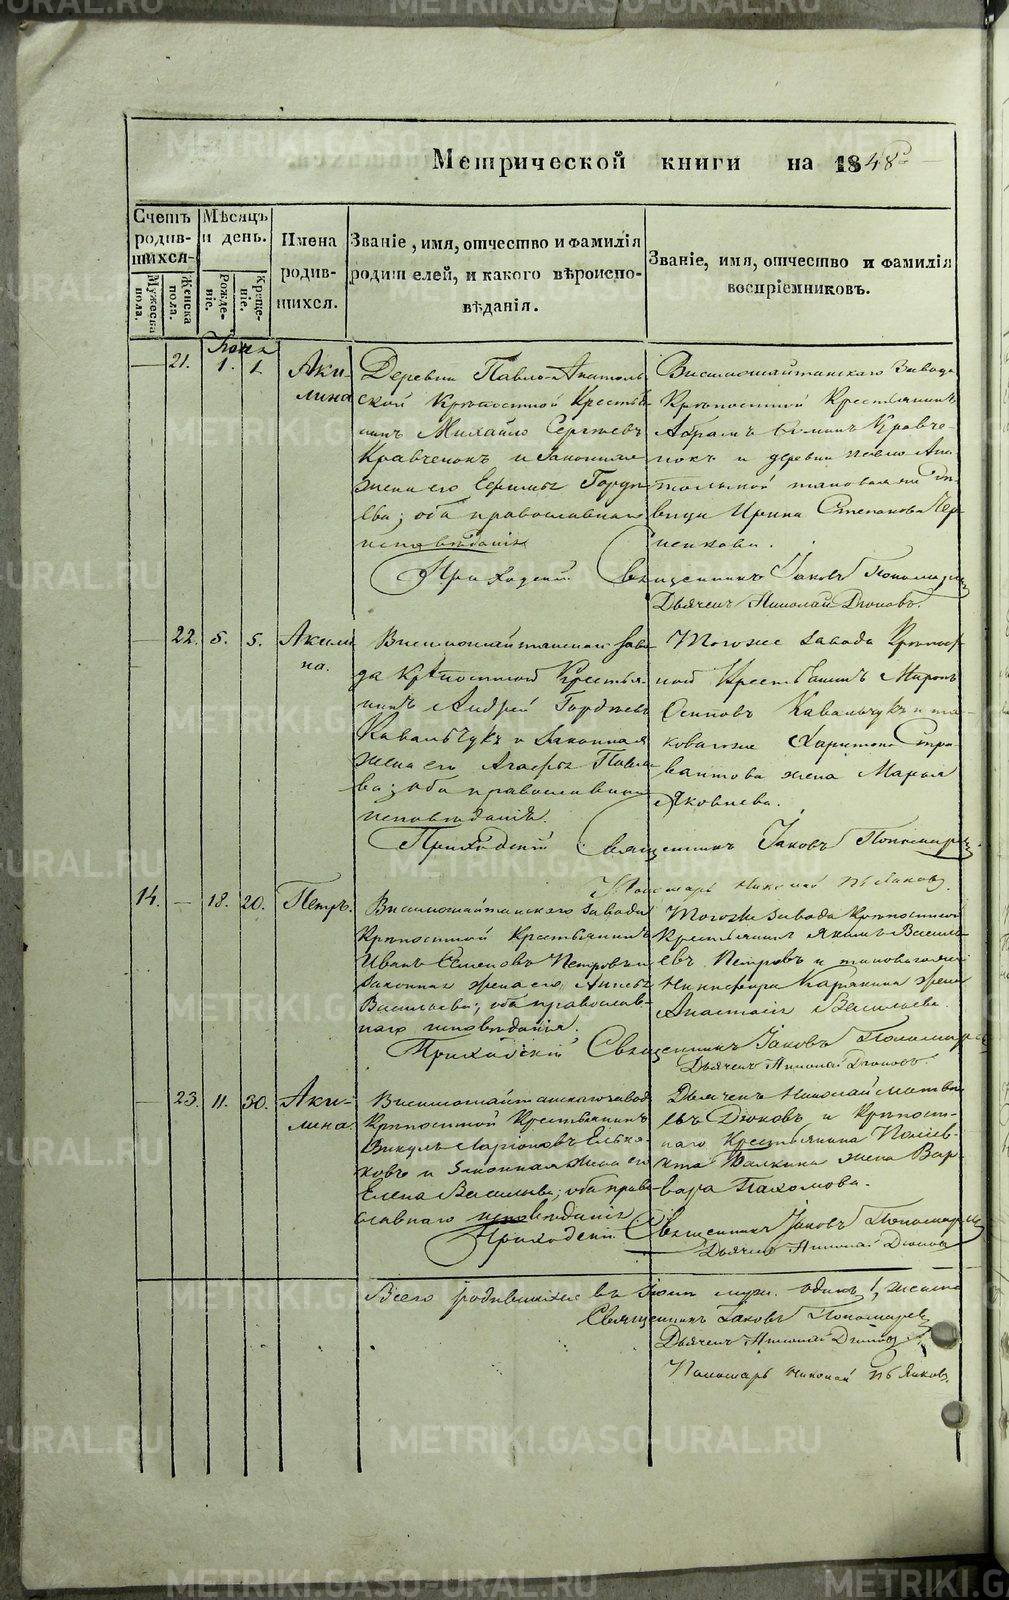 METRIKI.GASO-URAL.RU
Метрической книги на 1848 г.
Счетъ родив-шихся.
Мужеска пола.
Женска пола.
Мѣсяцъ и день.
Рожде-ніе.
Креще-ніе.
Имена родив-шихся.
Званіе, имя, отчество и фамилія
родителей, и какого вѣроиспо-
вѣданія.
Званіе, имя, отчество и фамилія
воспріемниковъ.
—
21.
1.
1.
Аки-
лина
Деревни Павло-Анатоль
ской крѣпостной крестья
нинъ Михайло Сергѣевъ
Кравченокъ и законная
жена его Ефимья Гордѣ
ева; оба православнаго
исповѣданія
Висимошайтанскаго завода
крѣпостной крестьянинъ
Абрамъ Кравче-
нокъ и деревни Павло Ана-
тольской таковая же дѣ-
вица Ирина Степанова Чер
ненкова.
Приходскій Священникъ Іаковъ Пономаревъ
Дьячекъ Николай Дюковъ.
—
22.
5.
5.
Акили
на.
Висимошайтанскаго заво
да крѣпостной крестья
нинъ Андрей Гордѣевъ
Кавальчукъ и законная
жена его Агафья Павло
ва; оба православнаго
исповѣданія.
Тогоже завода крѣпост-
ной крестьянинъ Миронъ
Осиповъ Кавальчукъ и та-
коваго же Харитона
жена Марья
Яковлева.
Приходскій Священникъ Іаковъ Пономаревъ
Пономарь Николай
14.
—
18.
20.
Петръ.
Висимошайтанскаго завода
крѣпостной крестьянинъ
Иванъ Семеновъ Петровъ и
законная жена его Анисья
Васильева; оба православ-
наго исповѣданія.
Тогоже завода крѣпостной
крестьянинъ Якимъ Василь
евъ Петровъ и таковаго же
Никифора Карякина жена
Анастасія Васильева.
Приходскій Священникъ Іаковъ Пономаревъ
Дьячекъ Николай Дюковъ
—
23.
11.
30.
Аки-
лина.
Висимошайтанскаго завода
крѣпостной крестьянинъ
Викулъ Ларіоновъ
и законная жена его
Елена Васильева; оба право
славнаго исповѣданія
Дьячекъ Николай Матвѣ
евъ Дюковъ и крѣпост-
наго крестьянина Поліев-
кта Палкина жена Вар-
вара Пахомова.
Приходскій Священникъ Іаковъ Пономаревъ
Дьячекъ Николай Дюковъ
Всего родившихся въ Іюнѣ муж. одинъ 1, женска
Священникъ Іаковъ Пономаревъ
Дьячекъ Николай Дюковъ
Пономарь Николай